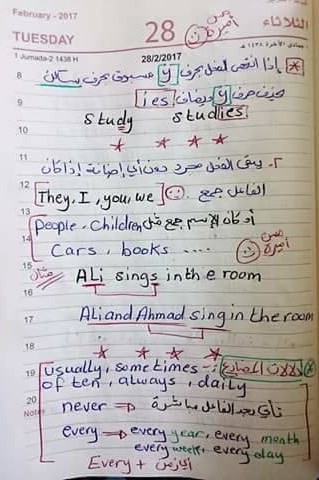 February - 2017
TUESDAY
28
الثلاثاء
مس أميرة
1 Jumada-2 1438 H
28/2/2017
جمادى الآخرة ١٤٣٨ هـ
* إذا انتهى الفعل بحرف y مسبوق بحرف ساكن
يحذف حرف y ويضاف ies
study studies
٢- يبقى الفعل مجرد دون أي إضافة إذا كان
الفاعل جمع. They, I, you, we
أو كان الاسم جمع مثل People, Children
Cars, books ....
مس أميرة
مثال
ALi sings in the room
Ali and Ahmad sing in the room
دلالات المضارع :- usually, sometimes
of ten, always, daily
never ⇒ تأتي بعد الفاعل مباشرة
every ⇒ every year, every month
every week, every day
Every + الزمن
8
9
10
11
12
13
14
15
16
17
18
19
20
Notes